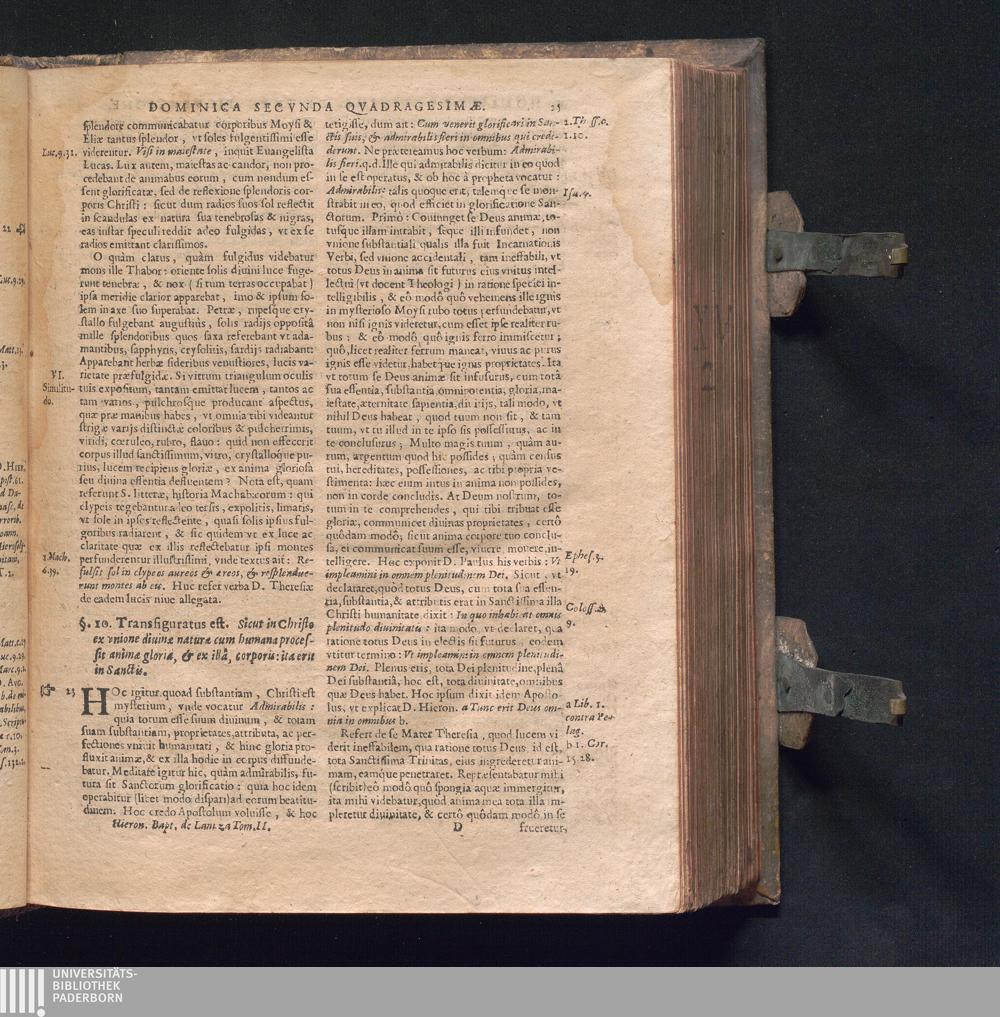 DOMINICA SECVNDA QVADRAGESIMÆ. 25
splendore communicabatur corporibus Moysi &
Eliæ tantus splendor, vt soles fulgentissimi esse
Luc.9.31. viderentur. Visi in maiestate, inquit Euangelista
Lucas. Lux autem, maiestas ac candor, non pro-
cedebant de animabus eorum, cum nondum es-
sent glorificatæ, sed de reflexione splendoris cor-
poris Christi: sicut dum radios suos sol reflectit
in scandulas ex natura sua tenebrosas & nigras,
eas instar speculi reddit adeo fulgidas, vt ex se
radios emittant clarissimos.
O quàm clarus, quàm fulgidus videbatur
mons ille Thabor: oriente solis diuini luce fuge-
runt tenebræ, & nox (si tum terras occupabat)
ipsa meridie clarior apparebat, imo & ipsum so-
lem in axe suo superabat. Petræ, rupesque cry-
stallo fulgebant augustiùs, solis radijs oppositâ
mille splendoribus quos saxa referebant vt ada-
mantibus, sapphyris, crysolitis, sardijs radiabant:
Apparebant herbæ sideribus venustiores, lucis va-
VI. rietate præfulgidæ. Si vitrum triangulum oculis
Similitu- tuis expositum, tantam emittat lucem, tantos ac
do. tam varios, pulchrosque producant aspectus,
quæ præ manibus habes, vt omnia tibi videantur
strigæ varijs distinctæ coloribus & pulcherrimis,
viridi, cœruleo, rubro, flauo: quid non effecerit
corpus illud sanctissimum, vitro, crystalloque pu-
rius, lucem recipiens gloriæ, ex anima gloriosa
seu diuina essentia defluentem? Nota est, quam
referunt S. litteræ, historia Machabæorum: qui
clypeis tegebantur adeo tersis, expolitis, limatis,
vt sole in ipsos reflectente, quasi solis ipsius ful-
goribus radiarent, & sic quidem vt ex luce ac
claritate quæ ex illis reflectebatur ipsi montes
1.Mach. perfunderentur illustrissimi, vnde textus ait: Re-
6.39. fulsit sol in clypeos aureos & æreos, & resplendue-
runt montes ab eis. Huc refer verba D. Theresiæ
de eadem lucis niue allegata.
§. 10. Transfiguratus est. Sicut in Christo
ex vnione diuinæ naturæ cum humana proces-
sit animæ gloria, & ex illâ, corporis: ita erit
in Sanctis.
23 HOc igitur, quoad substantiam, Christi est
mysterium, vnde vocatur Admirabilis:
quia totum esse suum diuinum, & totam
suam substantiam, proprietates, attributa, ac per-
fectiones vniuit humanitati, & hinc gloria pro-
fluxit animæ, & ex illa hodie in corpus diffunde-
batur. Meditare igitur hic, quàm admirabilis, fu-
tura sit Sanctorum glorificatio: quia hoc idem
operabitur (licet modo dispari) ad eorum beatitu-
dinem. Hoc credo Apostolum voluisse, & hoc
Hieron. Bapt. de Lanuza Tom. II.
tetigisse, dum ait: Cum venerit glorificari in San-
ctis suis, & admirabilis fieri in omnibus qui credi-
1.10. derunt. Ne prætereamus hoc verbum: Admirabi-
lis fieri. q.d. Ille qui admirabilis dicitur in eo quod
in se est operatus, & ob hoc à propheta vocatur:
Admirabilis: talis quoque erit, talemque se mon-
strabit in eo, quod efficiet in glorificatione San-
ctorum. Primò: Coniunget se Deus animæ, to-
tusque illam intrabit, seque illi infundet, non
vnione substantiali qualis illa fuit Incarnationis
Verbi, sed vnione accidentali, tam ineffabili, vt
totus Deus in anima sit futurus eius vnitus intel-
lectui (vt docent Theologi) in ratione speciei in-
telligibilis, & eò modò quò vehemens ille ignis
in mysterioso Moysi rubo totus perfundebatur, vt
non nisi ignis videretur, cum esset ipse realiter ru-
bus; & eò modò, quò ignis ferro immiscetur;
quò, licet realiter ferrum maneat, viuus ac purus
ignis esse videtur, habetque ignis proprietates. Ita
vt totum se Deus animæ sit infusurus, cum totâ
sua essentia, substantia, omnipotentia, gloria, ma-
iestate, æternitate sapientia, diuitijs, tali modo, vt
nihil Deus habeat, quod tuum non sit, & tam
tuum, vt tu illud in te ipso sis possessurus, ac in
te conclusurus; Multo magis tuum, quàm au-
rum, argentum quod hic possides; quàm census
tui, hereditates, possessiones, ac tibi propria ve-
stimenta: hæc enim intus in anima non possides,
non in corde concludis. At Deum nostrum, to-
tum in te comprehendes, qui tibi tribuat esse
gloriæ, communicet diuinas proprietates, certò
quòdam modò; sicut anima corpore tuo conclu-
sa, ei communicat suum esse, viuere, mouere, in-
Ephes.3. telligere. Hoc exponit D. Paulus his verbis: Vt
19. impleamini in omnem plenitudinem Dei. Sicut, vt
declararet, quòd totus Deus, cum tota sua essen-
tia, substantia, & attributis erat in Sanctissima illa
Coloss.2. Christi humanitate dixit: In quo inhabitat omnis
9. plenitudo diuinitatis: ita modo, vt declaret, qua
ratione totus Deus in electis sit futurus, eodem
vtitur termino: Vt impleamini in omnem plenitudi-
nem Dei. Plenus eris, tota Dei plenitudine, plenâ
Dei substantiâ, hoc est, tota diuinitate, omnibus
quæ Deus habet. Hoc ipsum dixit idem Aposto-
a Lib. 1. lus, vt explicat D. Hieron. a Tunc erit Deus om-
contra Pe- nia in omnibus b.
lag. Refert de se Mater Theresia, quod lucem vi-
b 1. Cor. derit ineffabilem, qua ratione totus Deus, id est,
15.28. tota Sanctissima Trinitas, eius ingrederetur ani-
mam, eamque penetraret. Repræsentabatur mihi
(scribit) eò modò quò spongia aquæ immergitur,
ita mihi videbatur, quòd anima mea tota illa im-
pleretur diuinitate, & certò quòdam modò in se
D frueretur,
UNIVERSITÄTS-
BIBLIOTHEK
PADERBORN